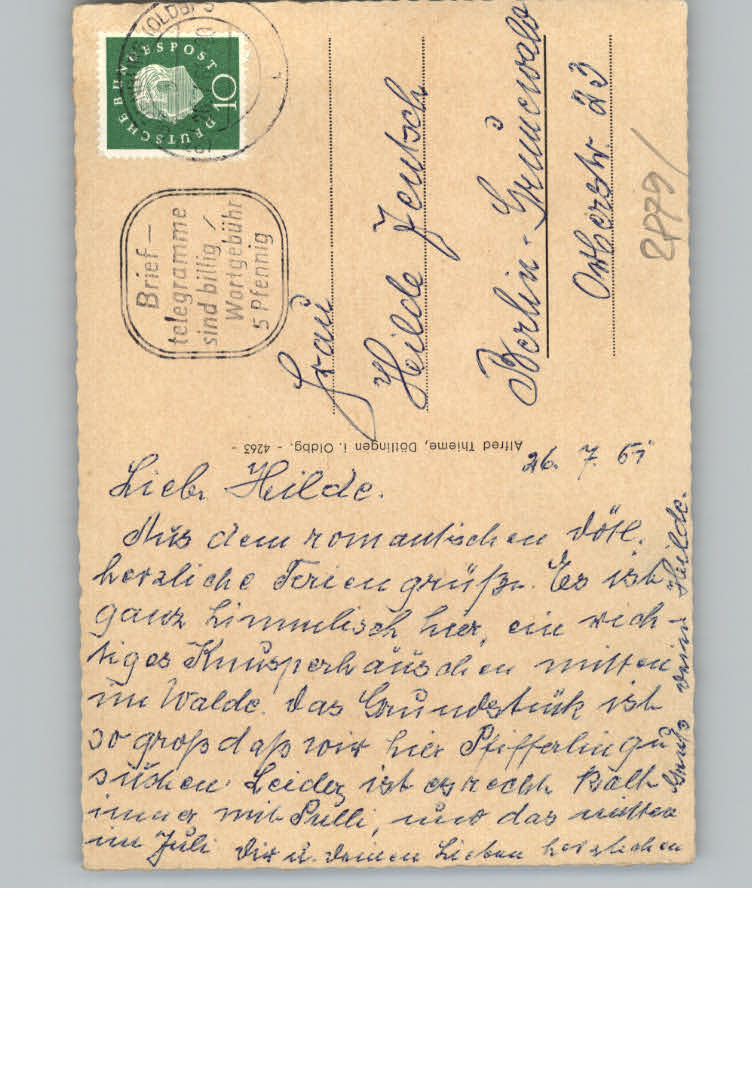 DEUTSCHE BUNDESPOST
10
(OLDB)
Brief-
telegramme
sind billig /
Wortgebühr
5 Pfennig
Frau
Hilde Jentsch
Berlin-Grunewald
23
2879/
Alfred Thieme, Dötlingen i. Oldbg. - 4263 -
26. 7. 61
Liebe Hilde.
Aus dem romantischen Dötl.
herzliche Feriengrüße. Es ist
ganz himmlisch hier, ein rich-
tiges Knusperhäuschen mitten
im Walde. Das Grundstük ist
so groß daß wir hier Pfifferlinge
suchen. Leider ist es recht kalt
immer mit Pulli, und das mitten
im Juli. Dir u. Deinen Lieben herzlichen
Gruß Deine Hilde.